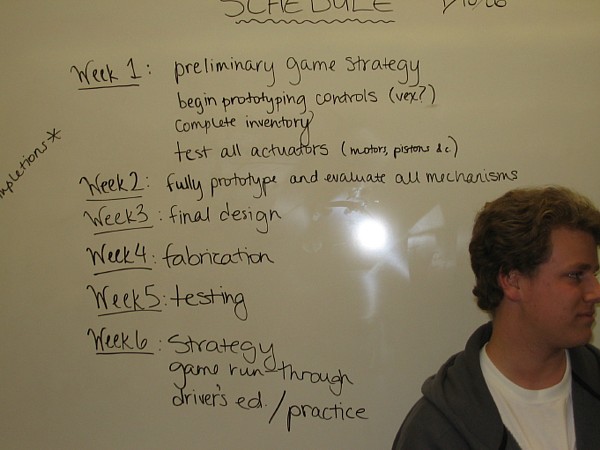 SCHEDULE
Week 1: preliminary game strategy
begin prototyping controls (vex?)
complete inventory
test all actuators (motors, pistons &c.)
Week2: fully prototype and evaluate all mechanisms
Week3: final design
Week4: fabrication
Week5: testing
Week6: Strategy
game run through
driver's ed. / practice